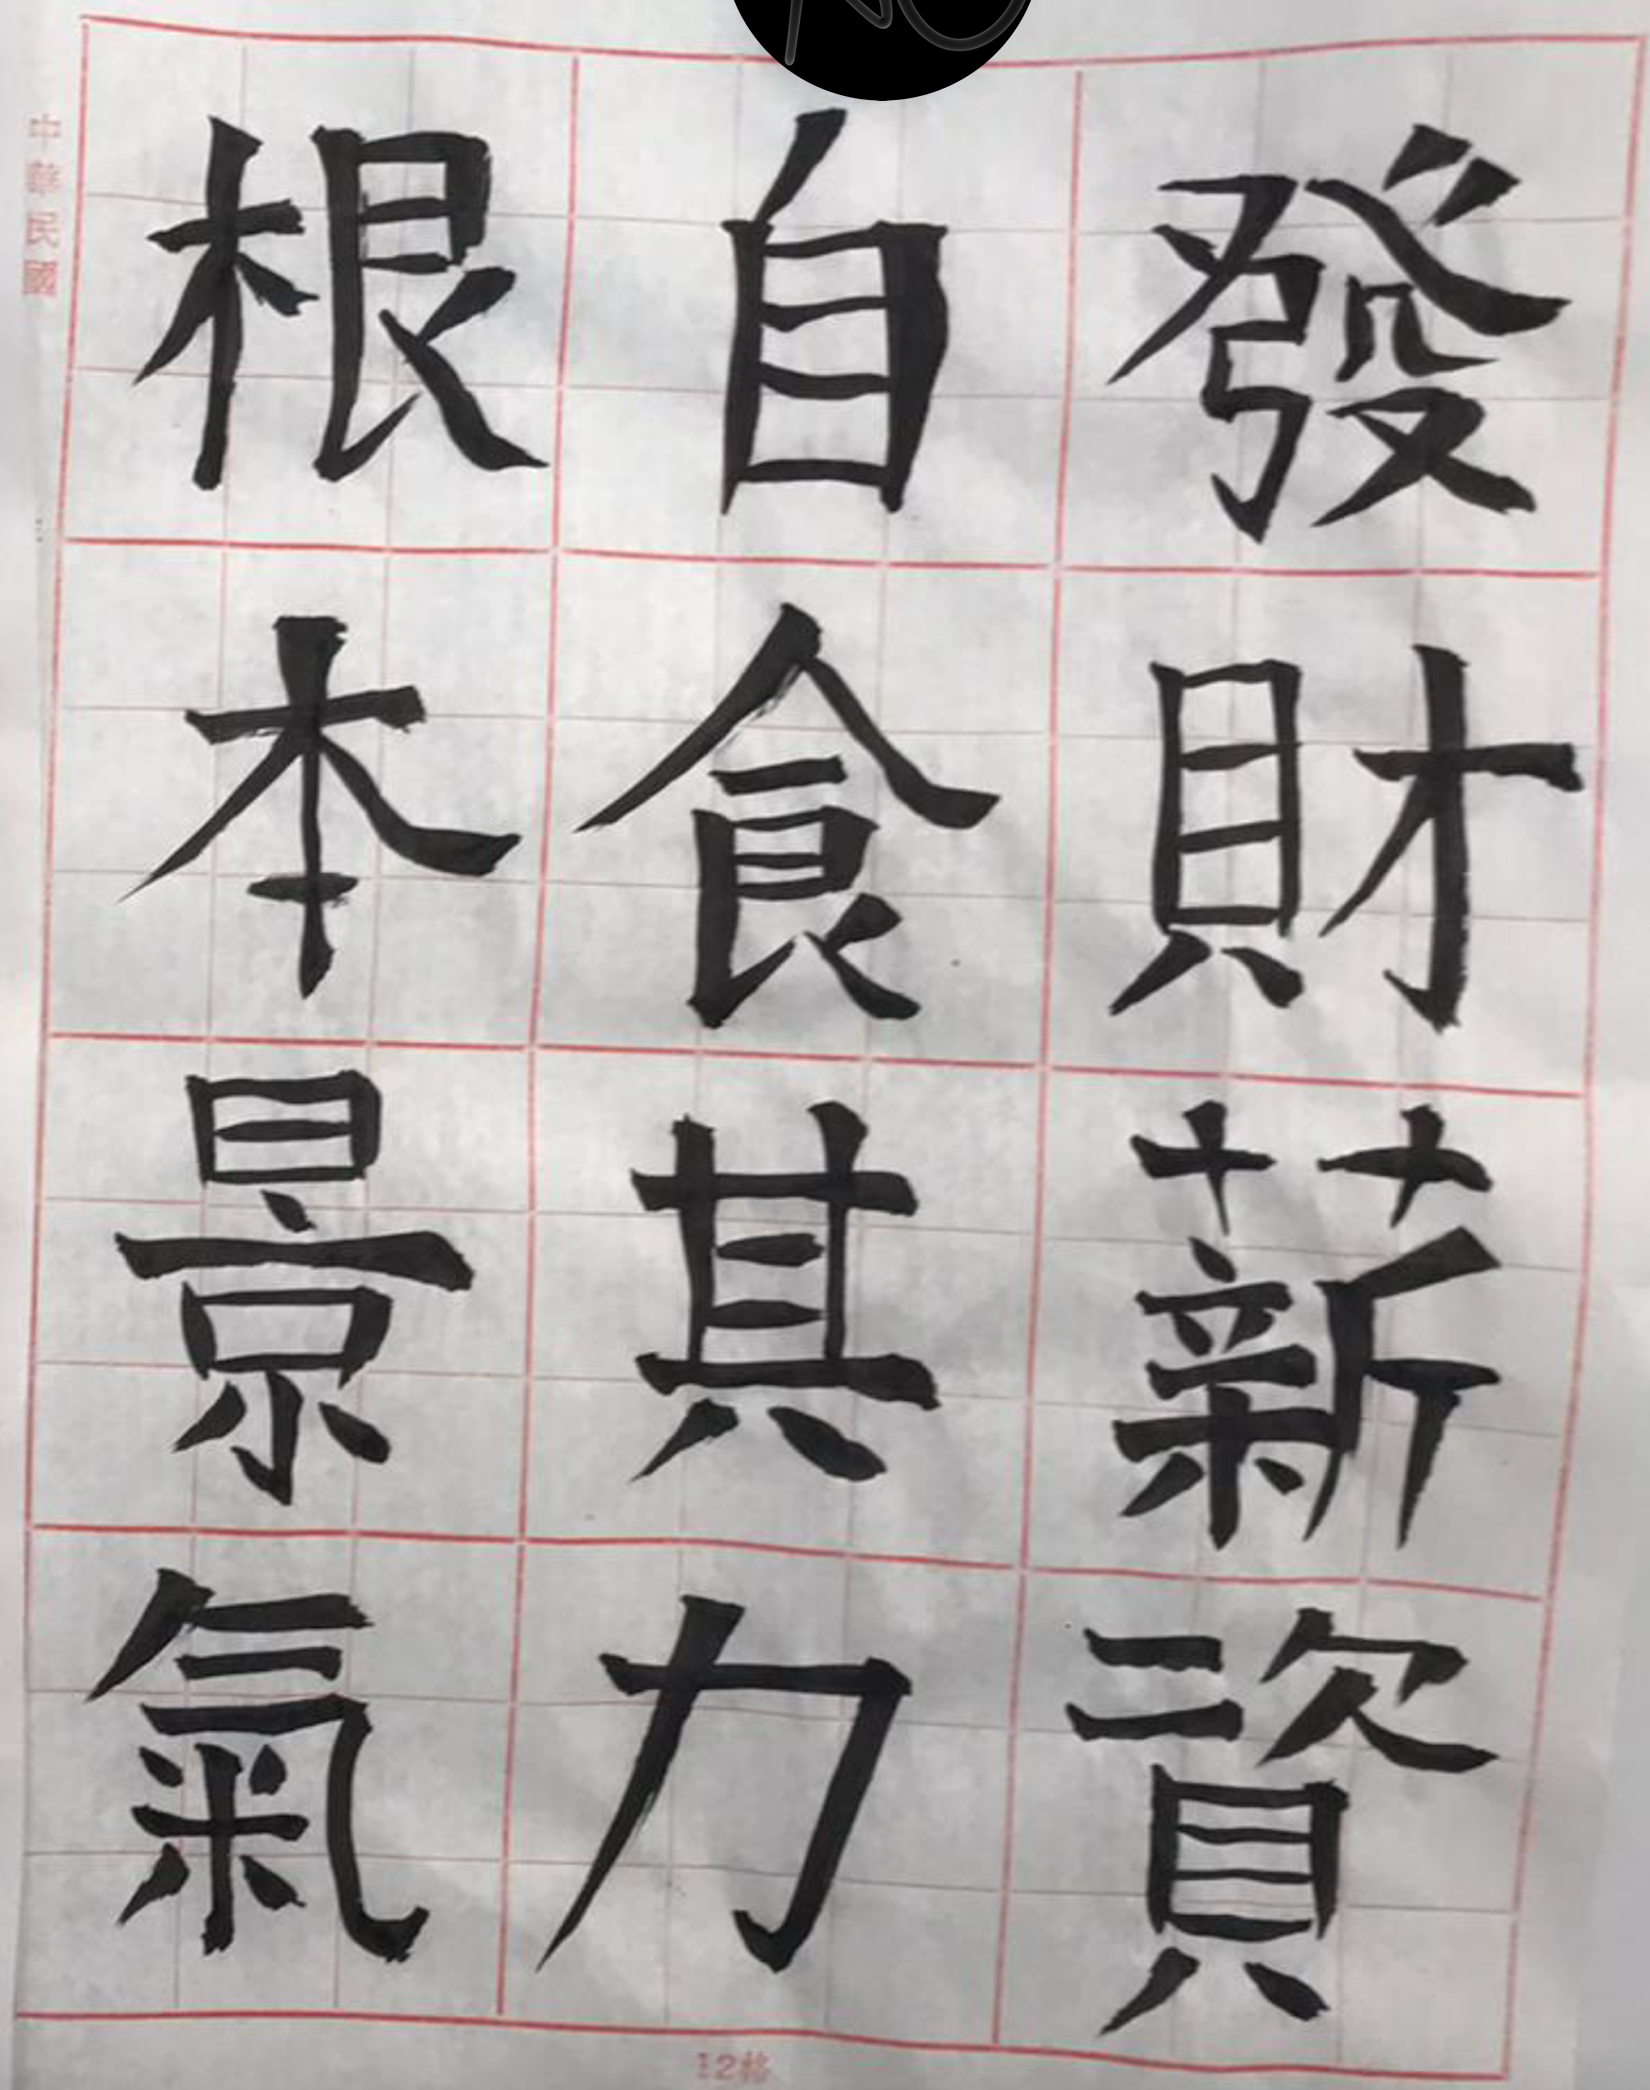 發財薪資
自食其力
根本景氣
中華民國
12格